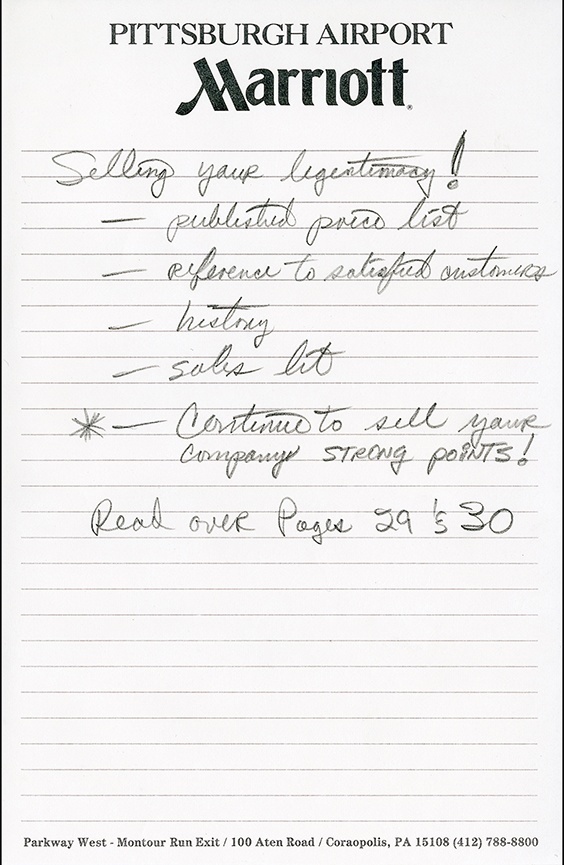 PITTSBURGH AIRPORT
Marriott
Selling your legentimacy!
— published price list
— reference to satisfied customers
— history
— sales lit
* — Continue to sell your
company STRONG POINTS!
Read over Pages 29 & 30
Parkway West - Montour Run Exit / 100 Aten Road / Coraopolis, PA 15108 (412) 788-8800